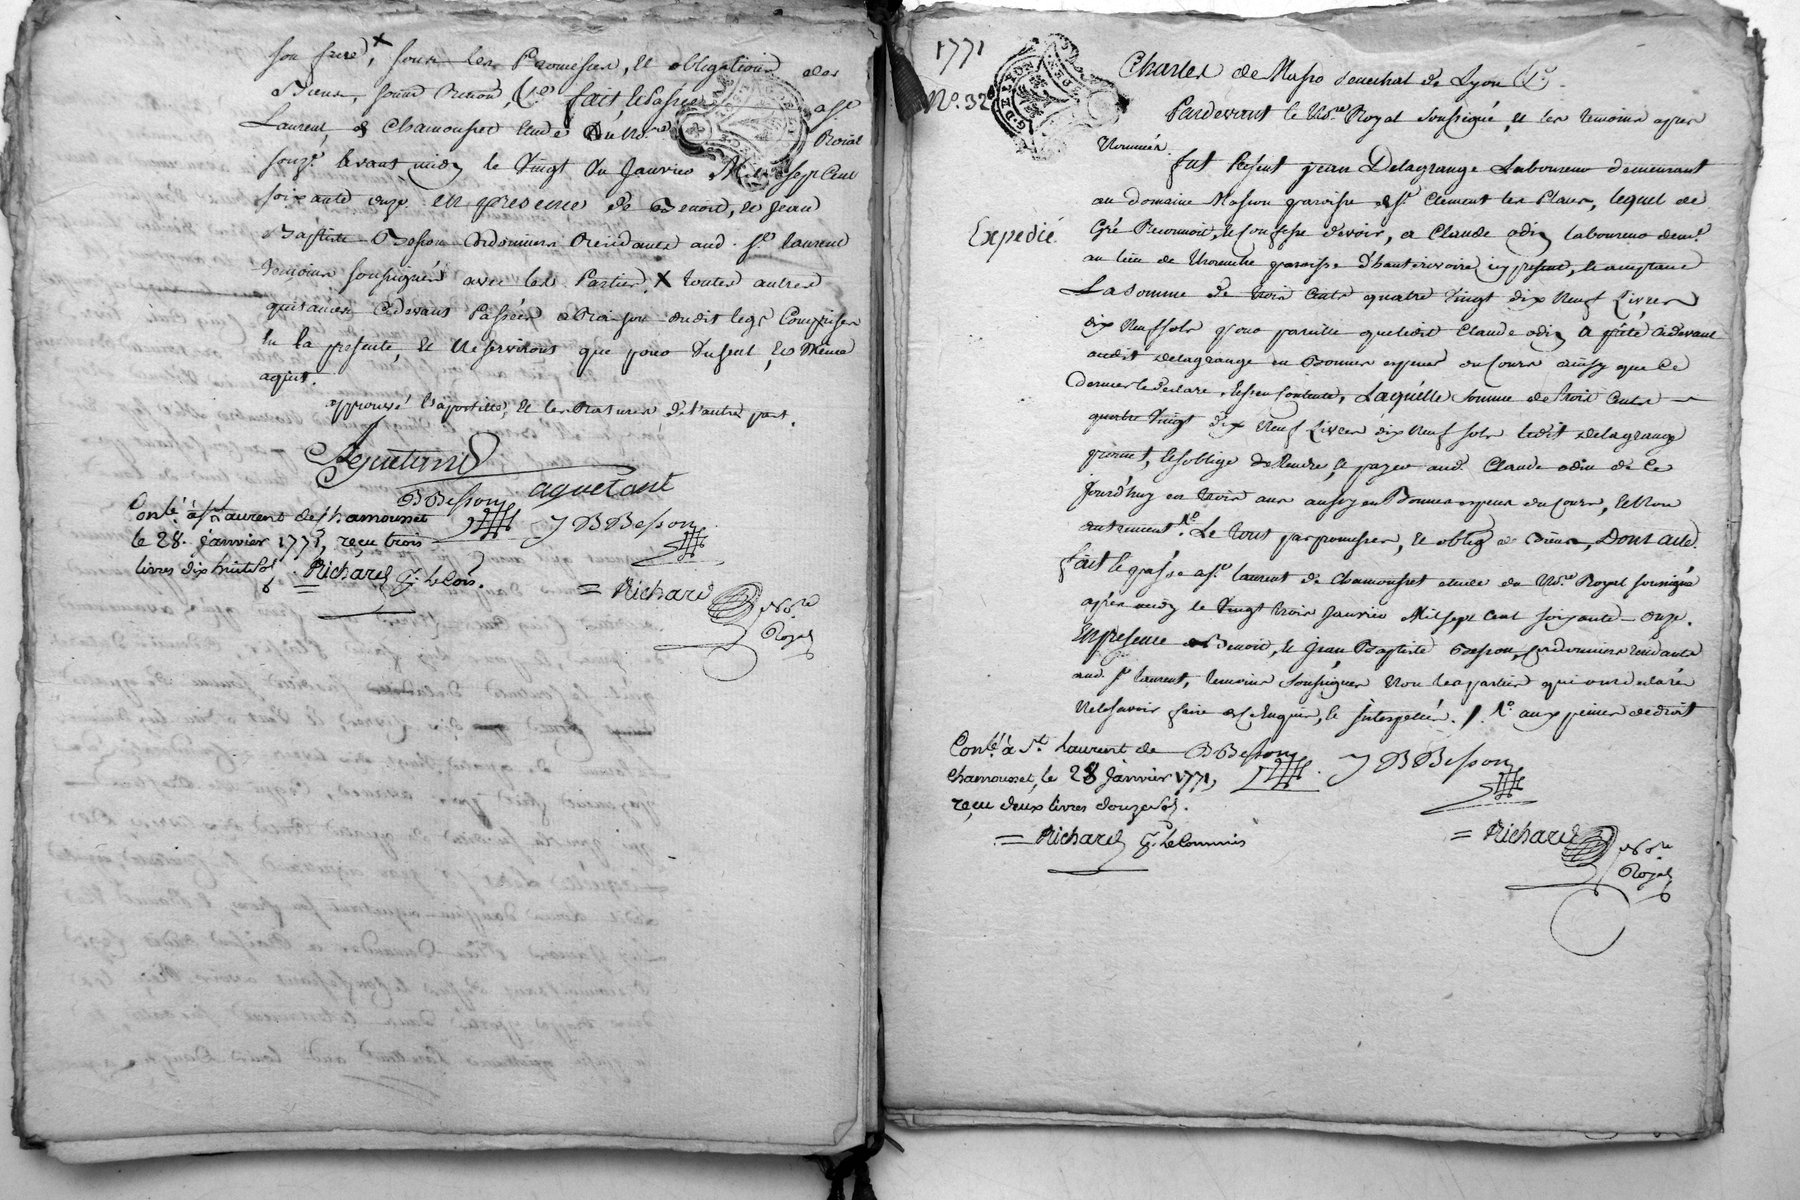 son frere, x sous les Promesses, et obligations des
Biens, soumis Renon, &c. fait et Passé a St
Laurent de Chamousset Etude du No.re Roial
souz.é avant midy le Vingt un Janvier Mil Sept Cent
soixante onze en presence de Benoit, et Jean
Baptiste Besson Cordonniers Residants aud. St. laurent
temoins soussignés avec les Parties. X toutes autres
quitances Cydevant Passées a Raison dudit legs Comprises
en la presente, et Ne serviront que pour Un seul, et Même
aquit.
approuvé l'apostille, et les Ratures de l'autre part.
Aguetand
aguetant
BBesson
JBBesson
Conlé à St Laurent de Chamousset
le 28. Janvier 1771, reçu trois
livres dix huit sol
Richard
= Richard
No.re
Royal
1771
No. 32
G. DE LYON
Charles de Masso senechal de Lyon &c.
Pardevant le No.re Royal soussigné, et les temoins apres
Nommés.
fut Present jean Delagrange Laboureur demeurant
au domaine Masson paroisse de St. Clement les Places, lequel de
Expedié.
Gré Reconnoit, et Confesse devoir, a Claude odin laboureur dem.t
au lieu de paroisse d'hauterivoire icy present, et acceptant
La somme de trois Cents quatre Vingt dix Neuf Livres
dix Neuf sols pour pareille que ledit Claude odin a prété cidevant
audit delagrange en Bonnes especes du Cours ainsy que Ce
dernier le declare, et s'en Contente, Laquelle somme de trois Cents
quatre Vingt dix Neuf Livres dix Neuf sols ledit delagrange
promet, et s'oblige de Rendre, et payer aud. Claude odin de Ce
jourd'huy en trois ans aussy en Bonnes especes du Cours, et Non
autrement. Le tout par promesses, et oblig. de Biens, Dont acte.
fait et passé a St. laurent de Chamousset etude du No.re Royal sousigné
après midy le Vingt trois Janvier Mil sept Cent soixante onze.
En presence de Benoit, et jean Baptiste Besson, Cordonniers residants
aud. St laurent, temoins soussignés Non les parties qui ont declaré
Ne le savoir faire de ce Enquis, et Interpellés. aux peines de droit
Conlé à St. Laurent de
Chamousset, le 28 Janvier 1771,
reçu deux livres douze sol.
BBesson
JBBesson
= Richard
= Richard
No.re
Royal